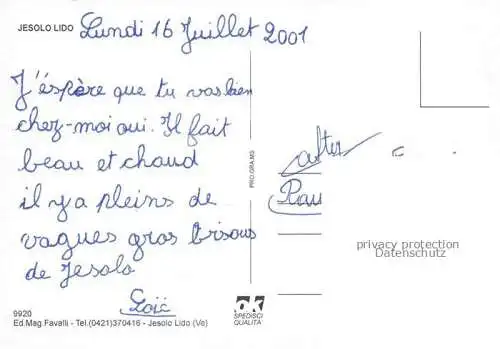 JESOLO LIDO Lundi 16 Juillet 2001
J'éspère que tu vas bien
chez-moi oui. Il fait
beau et chaud
il y a pleins de
vagues gros bisous
de Jesolo
Loïc
PROGRAMS
privacy protection
Datenschutz
9920
Ed.Mag Favalli - Tel.(0421)370416 - Jesolo Lido (Ve)
ok
SPEDISCI
QUALITA'